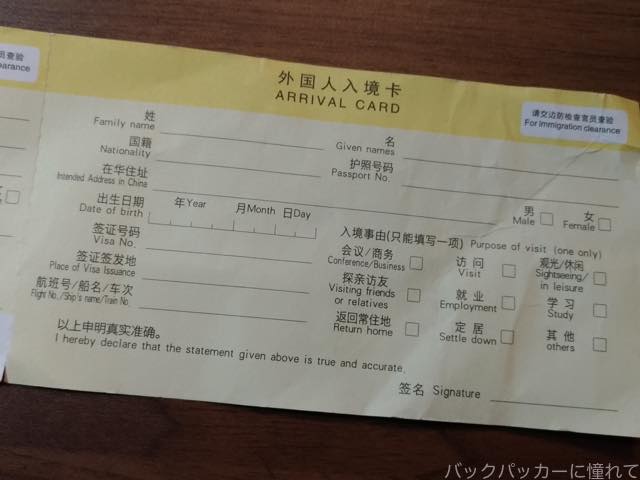 员查验
arance
外国人入境卡
ARRIVAL CARD
请交边防检查官员查验
For Immigration clearance
姓
Family name
名
Given names
国籍
Nationality
护照号码
Passport No.
在华住址
Intended Address in China
男
Male
女
Female
出生日期 年Year 月Month 日Day
Date of birth
入境事由(只能填写一项) Purpose of visit (one only)
签证号码
Visa No.
会议/商务
Conference/Business
访问
Visit
观光/休闲
Sightseeing/
in leisure
签证签发地
Place of Visa Issuance
探亲访友
Visiting friends
or relatives
就业
Employment
学习
Study
航班号/船名/车次
Flight No./Ship's name/Train No.
返回常住地
Return home
定居
Settle down
其他
others
以上申明真实准确。
I hereby declare that the statement given above is true and accurate.
签名 Signature
バックパッカーに憧れて